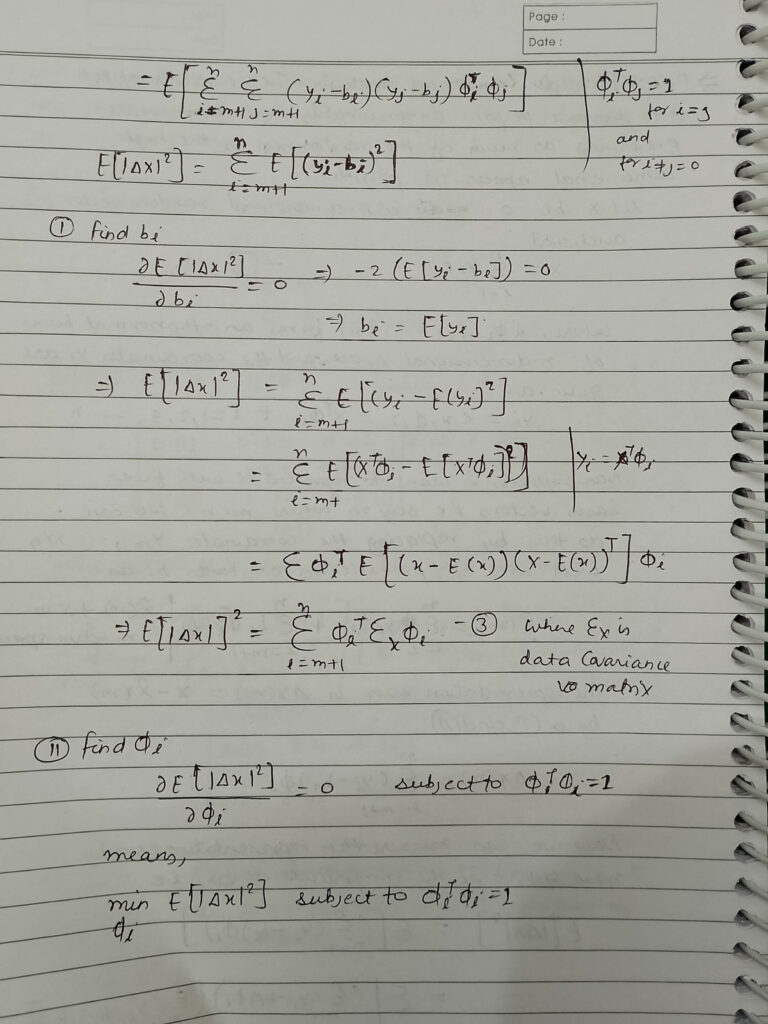 Page :
Date :
= E[ Σ_{i=m+1}^{n} Σ_{j=m+1}^{n} (yi-bi)(yj-bj) ϕi^T ϕj ]
ϕi^T ϕj = 1
for i=j
and
for i≠j=0
E[|Δx|²] = Σ_{i=m+1}^{n} E[(yi-bi)²]
① find bi
∂E[|Δx|²]/∂bi = 0 ⇒ -2 (E[yi-bi]) = 0
⇒ bi = E[yi]
⇒ E[|Δx|²] = Σ_{i=m+1}^{n} E[(yi - E(yi)²]
= Σ_{i=m+}^{n} E[(x^Tϕi - E[x^Tϕi])²]
yi = x^Tϕi
= Σ ϕi^T E[(x-E(x))(x-E(x))^T] ϕi
⇒ E[|Δx|]² = Σ_{i=m+1}^{n} ϕi^T Σx ϕi - ③ where Σx is
data Covariance
matrix
⑪ find ϕi
∂E[|Δx|²]/∂ϕi = 0 subject to ϕi^T ϕi = 1
means,
min_{ϕi} E[|Δx|²] subject to ϕi^T ϕi = 1